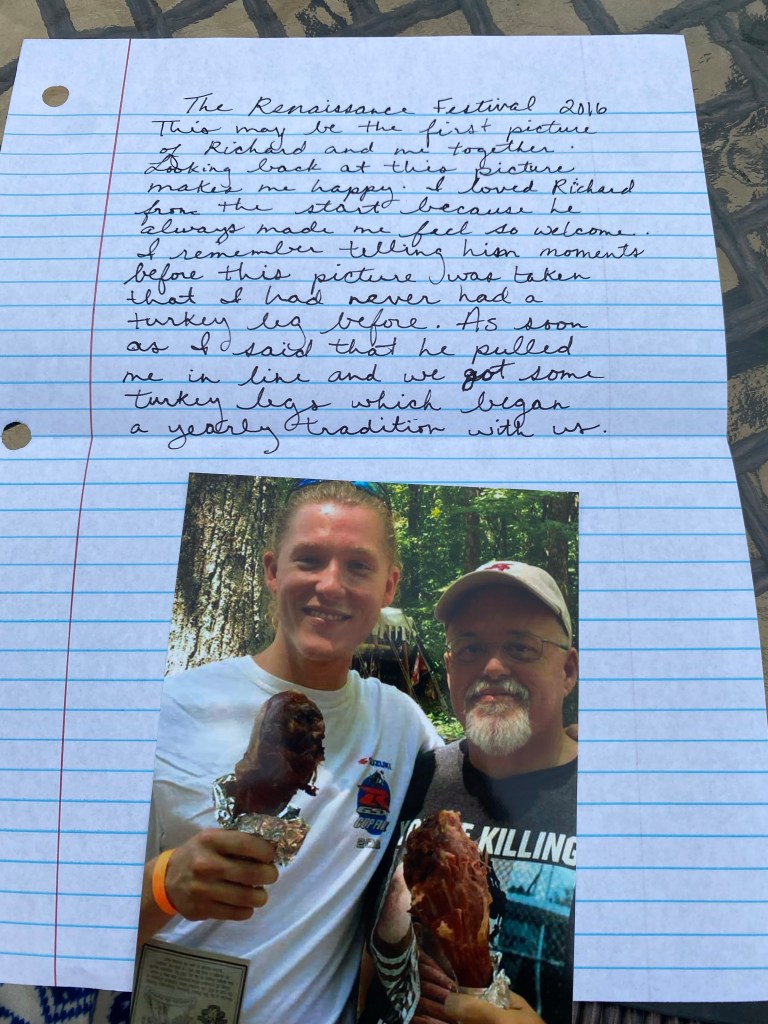 The Renaissance Festival 2016
This may be the first picture
of Richard and me together.
Looking back at this picture
makes me happy. I loved Richard
from the start because he
always made me feel so welcome.
I remember telling him moments
before this picture was taken
that I had never had a
turkey leg before. As soon
as I said that he pulled
me in line and we got some
turkey legs which began
a yearly tradition with us.
SUZUKI
R
CUP FINALS
KILLING